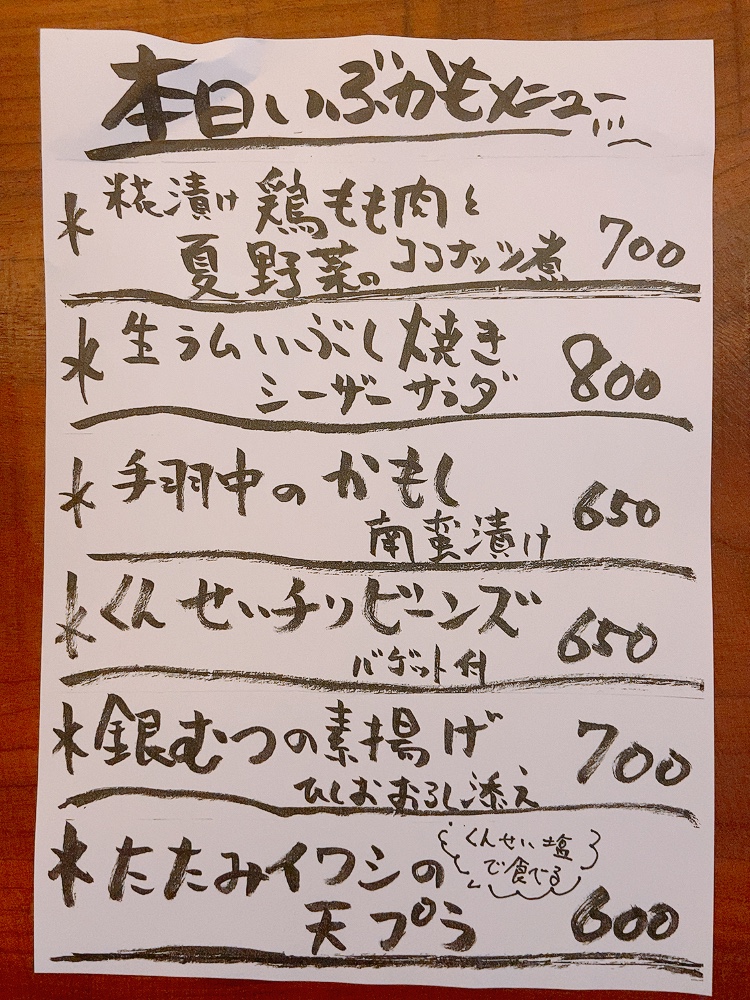 本日いぶかもメニュー
糀漬け 鶏もも肉と
夏野菜のココナッツ煮 700
生ラムいぶし焼き
シーザーサラダ 800
手羽中のかもし
南蛮漬け 650
くんせいチリビーンズ
バゲット付 650
銀むつの素揚げ 700
ひしおおろし添え
たたみイワシの
くんせい塩
で食べる
天プラ 600